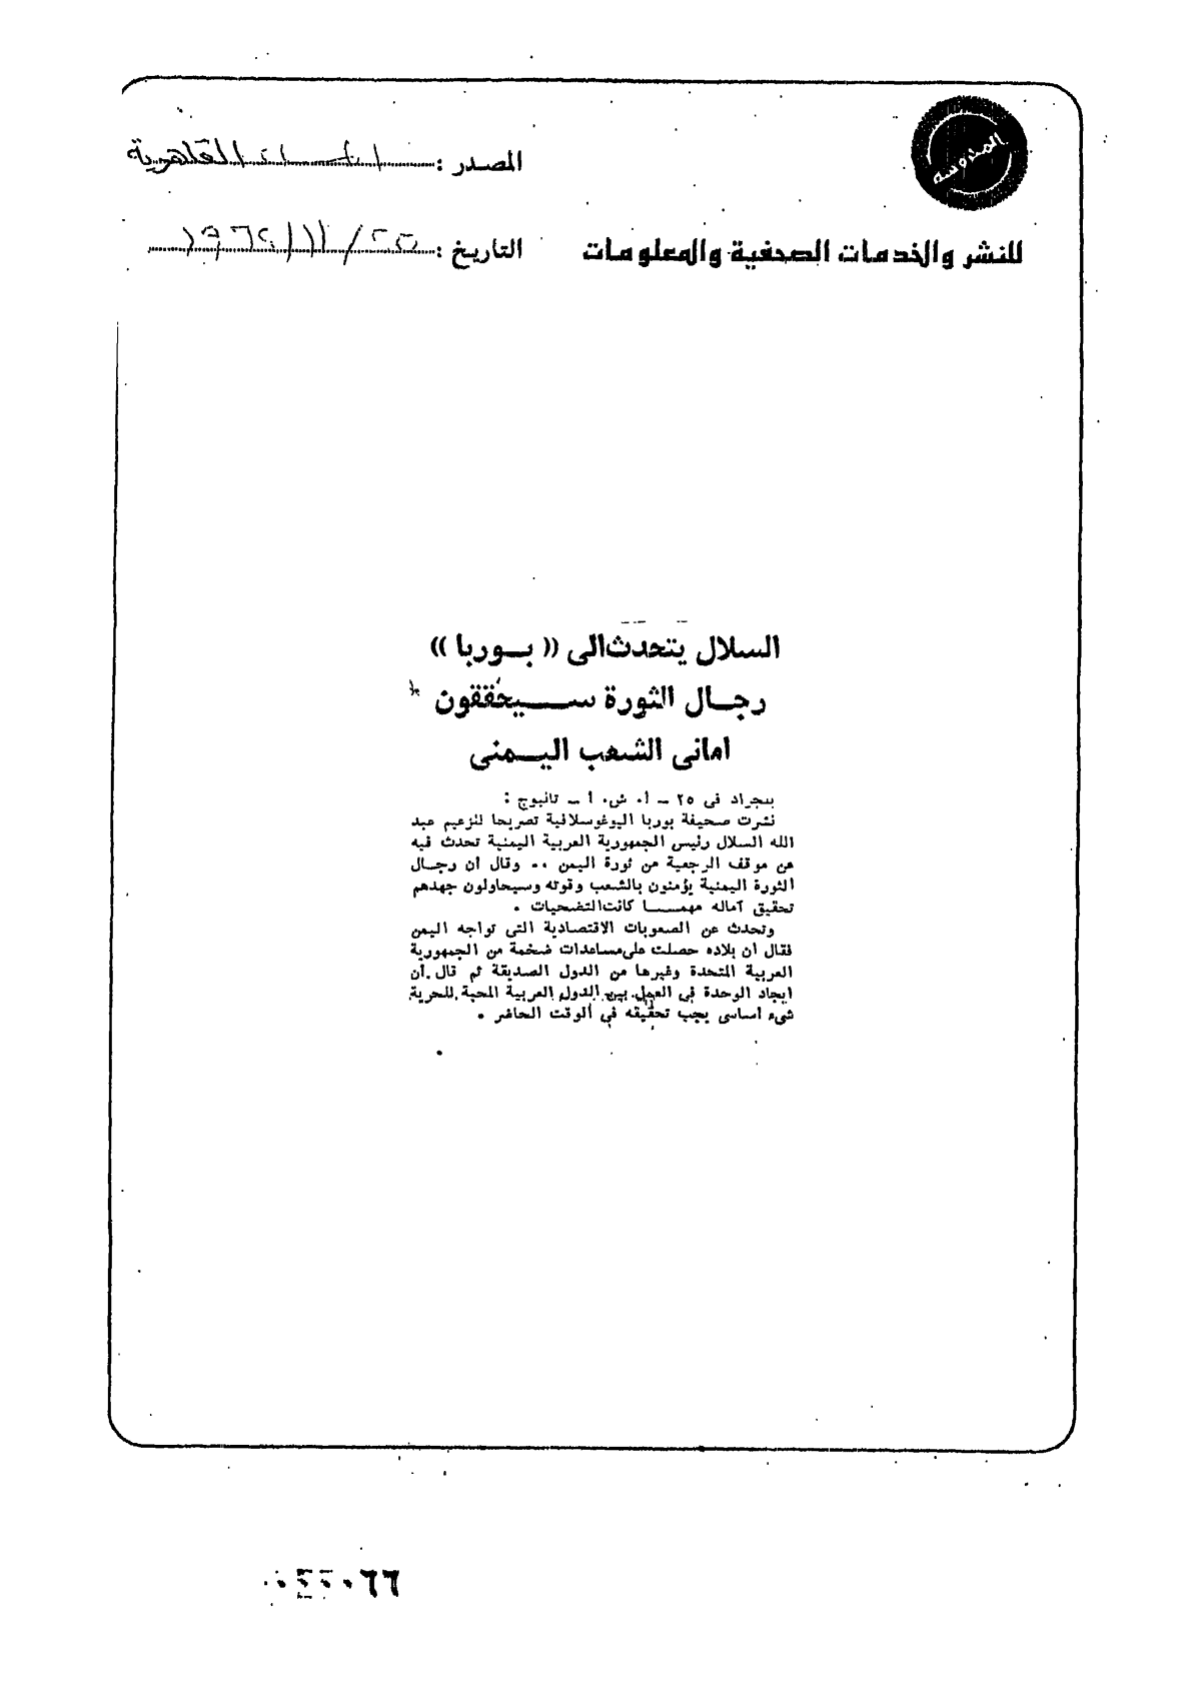 المدوسه
المصدر : القاهرية
للنشر والخدمات الصحفية والمعلومات التاريخ : ٢٥ / ١١ / ١٩٦٢
السلال يتحدث الى (( بـوربا ))
رجـال الثورة ســيحققون
امانى الشعب اليـمنى
بلجراد فى ٢٥ ـ أ. ش. أ ـ تانيوج :
نشرت صحيفة بوربا اليوغوسلافية تصريحا للزعيم عبد
الله السلال رئيس الجمهورية العربية اليمنية تحدث فيه
عن موقف الرجعية من ثورة اليمن .. وقال ان رجـال
الثورة اليمنية يؤمنون بالشعب وقوته وسيحاولون جهدهم
تحقيق آماله مهمــا كانت التضحيات .
وتحدث عن الصعوبات الاقتصادية التى تواجه اليمن
فقال ان بلاده حصلت على مساعدات ضخمة من الجمهورية
العربية المتحدة وغيرها من الدول الصديقة ثم قال أن
ايجاد الوحدة فى العمل بين الدول العربية المحبة للحرية
شىء اساسى يجب تحقيقه فى الوقت الحاضر .